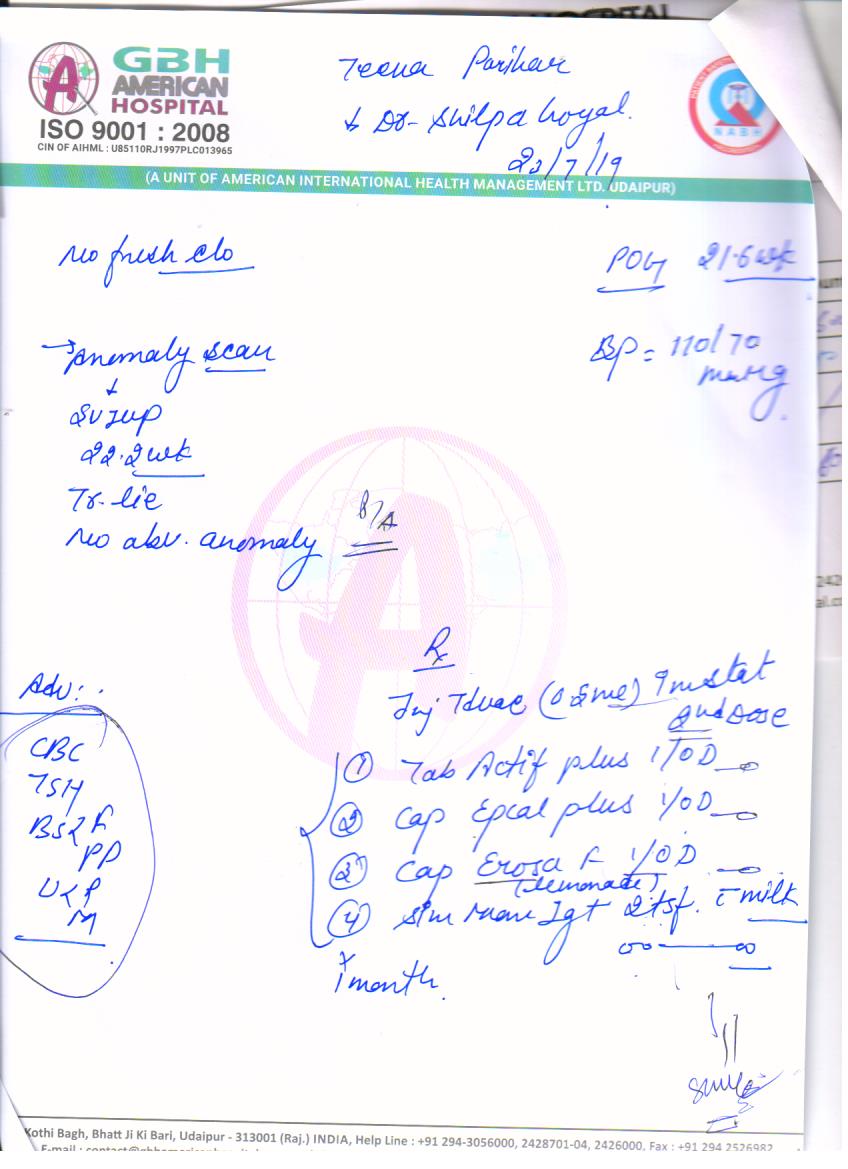 HOSPITAL
GBH
AMERICAN
HOSPITAL
ISO 9001 : 2008
CIN OF AIHML : U85110RJ1997PLC013965
Teena Parihar
Dr- Shilpa Goyal.
23/7/19
NABH
(A UNIT OF AMERICAN INTERNATIONAL HEALTH MANAGEMENT LTD. UDAIPUR)
No fresh c/o
POG 21.6wk
BP = 110/70
mmHg
→ Anomaly scan
↓
SVIUP
22.2wk
Tr. lie
No abv. anomaly
Rx
Adv:
Inj Tdvac (0.5ml) Im stat
2nd Dose
CBC
TSH
BS < F
PP
U < P
M
① Tab Actif plus 1/OD
② Cap Epcal plus 1/OD
③ Cap Erosa F 1/OD
(lemonade)
④ Sim Mom Igt 2tsf. c milk
x
1 month
Kothi Bagh, Bhatt Ji Ki Bari, Udaipur - 313001 (Raj.) INDIA, Help Line : +91 294-3056000, 2428701-04, 2426000, Fax : +91 294 2526982